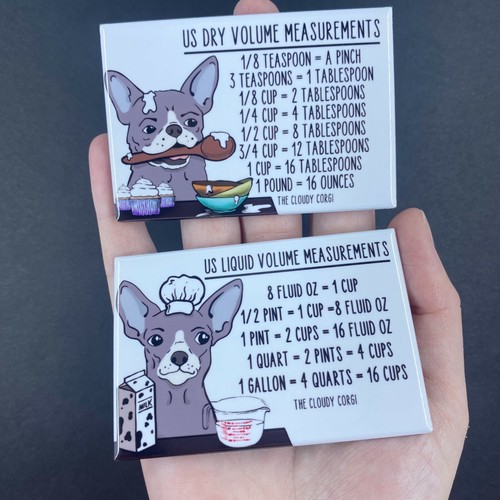 US DRY VOLUME MEASUREMENTS
1/8 TEASPOON = A PINCH
3 TEASPOONS = 1 TABLESPOON
1/8 CUP = 2 TABLESPOONS
1/4 CUP = 4 TABLESPOONS
1/2 CUP = 8 TABLESPOONS
3/4 CUP = 12 TABLESPOONS
1 CUP = 16 TABLESPOONS
1 POUND = 16 OUNCES
THE CLOUDY CORGI
US LIQUID VOLUME MEASUREMENTS
8 FLUID OZ = 1 CUP
1/2 PINT = 1 CUP =8 FLUID OZ
1 PINT = 2 CUPS = 16 FLUID OZ
1 QUART = 2 PINTS = 4 CUPS
1 GALLON = 4 QUARTS = 16 CUPS
THE CLOUDY CORGI
MILK